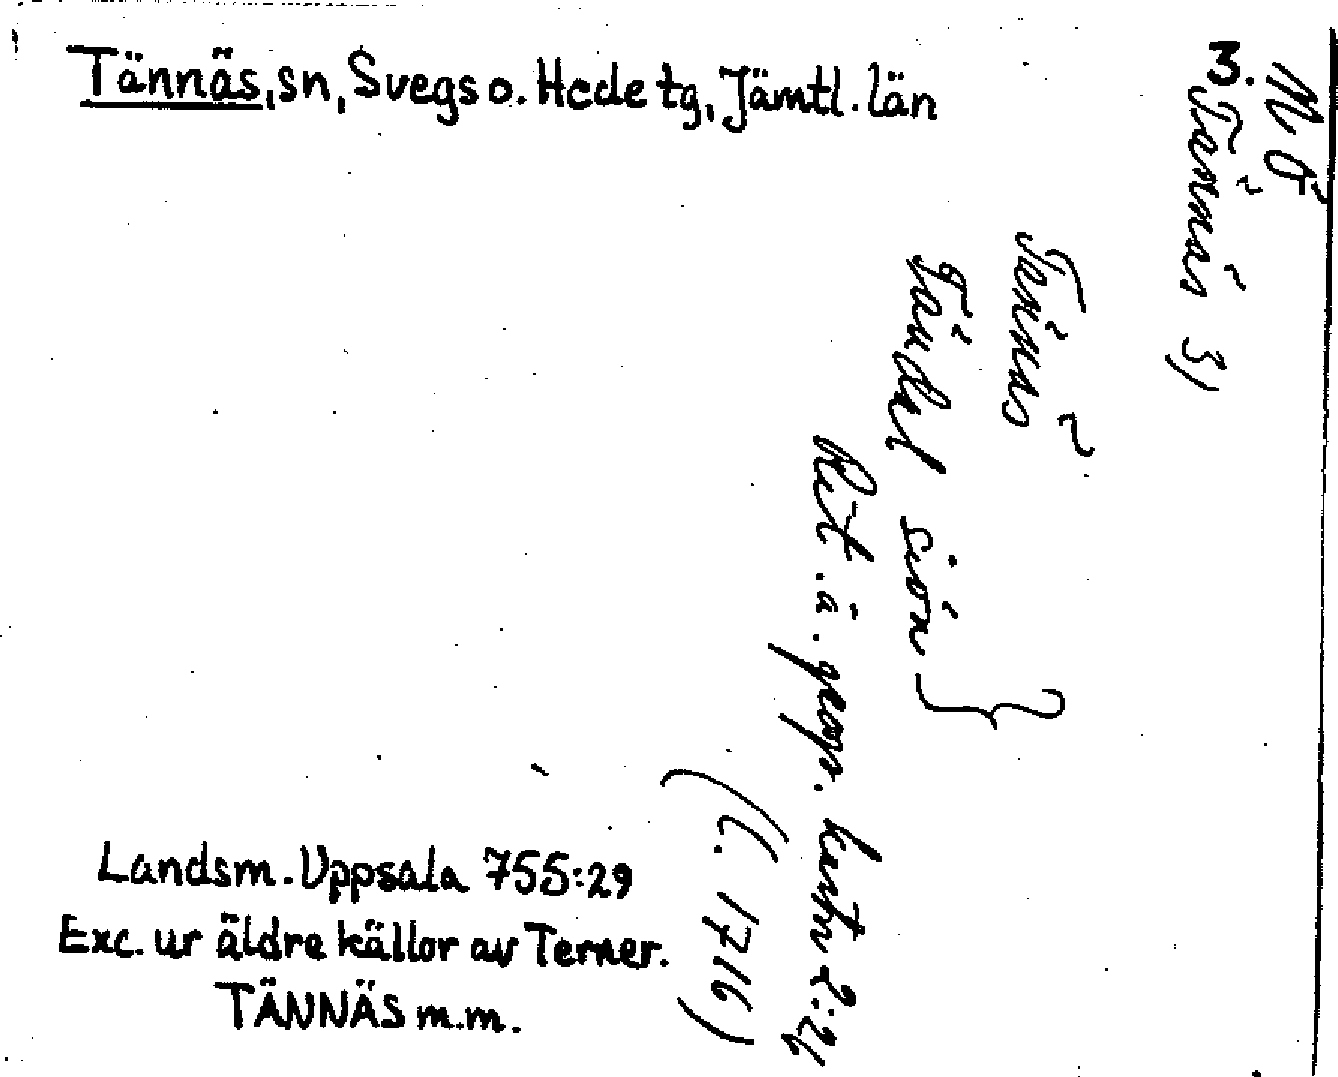 Tännäs, sn, Svegs o. Hede tg, Jämtl. län
3.
Tännäs 3)
Tenäs
Tändel siön }
Rit. ä. geogr. kartv 2:26
(C. 1716)
Landsm. Uppsala 755:29
Exc. ur äldre källor av Terner.
TÄNNÄS m.m.